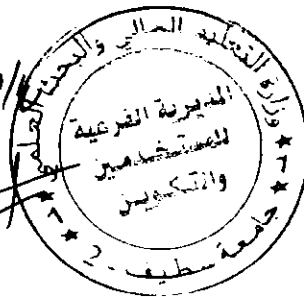 وزارة التعليم العالي والبحث العلمي
المديرية الفرعية
للمستخدمين
والتكوين
جامعة سطيف - 2